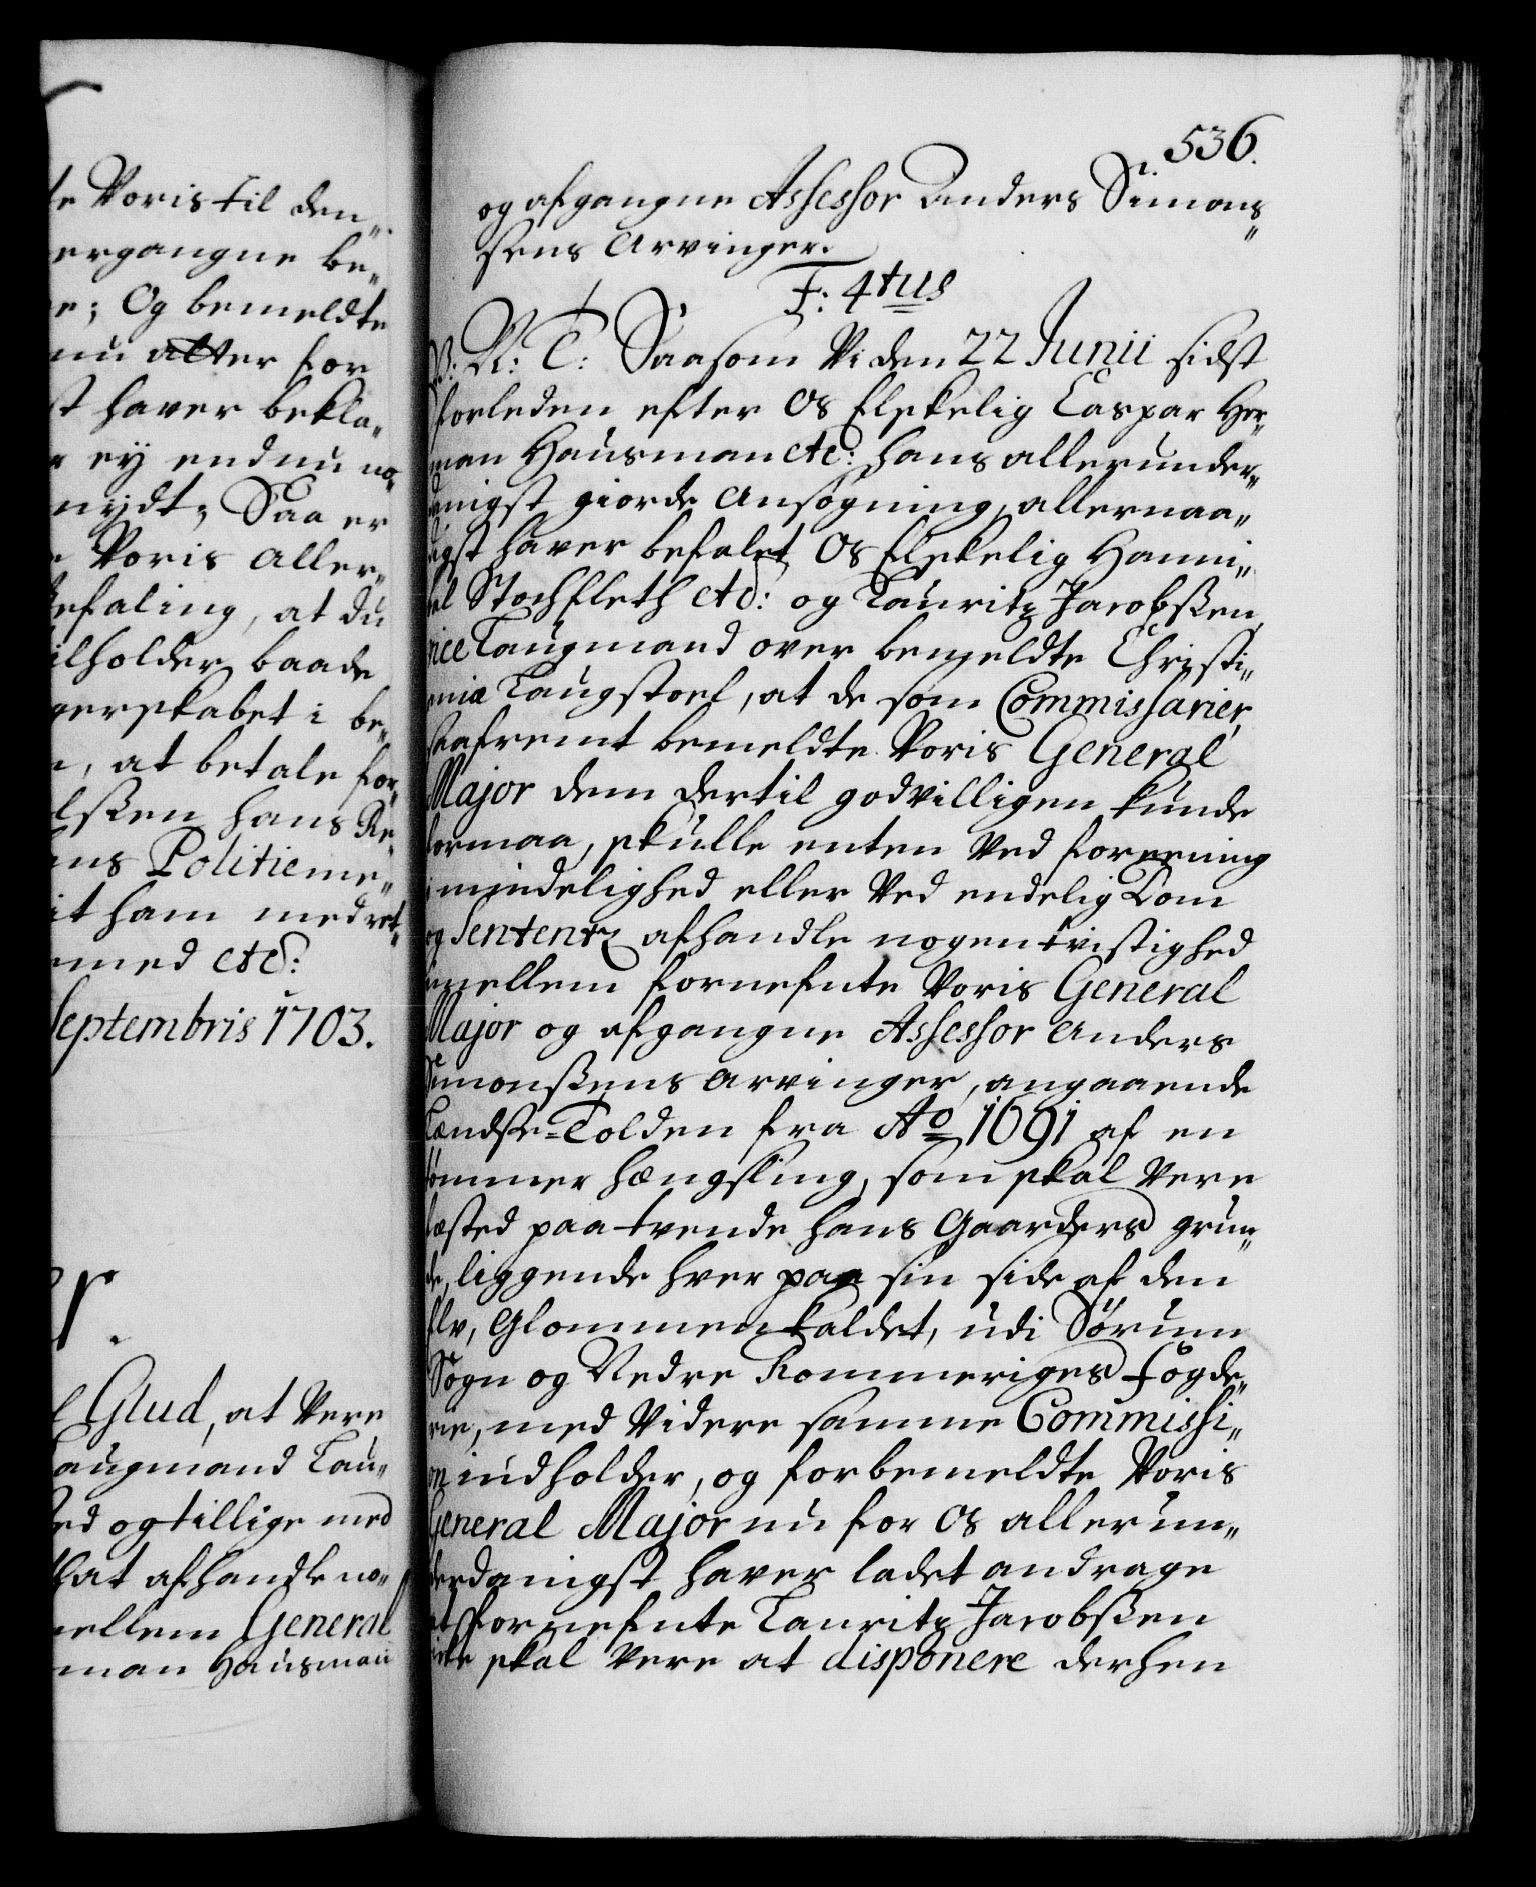 te Voris til den„
ergangne be„
e; Og bemeldte
nu atter for
st haver bekla„
r ey endnu no„
nydt; Saa er
e Voris Aller„
befaling, at du
ilholder baade
gerskabet i be„
n, at betale for„
lssen hans Re„
ans Politieme„
it ham med ret„
med etc:
Septembris 1703.
l Glud, at Vere
Laugmand Lau„
sted og tillige med
hat afhandle no„
mellem General
man Hausman
536.
og afgangne Assessor Anders Simons„
sens Arvinger.
F: 4tus
V: N: T: Saasom Vi den 22 Junii sidst
forleden efter Os Elskelig Caspar Her„
man Hausman etc: hans allerunder„
danigst giorde Ansøgning, allernaa„
digst haver befalet Os Elskelig Hanni„
bal Stochfleth etc: og Lauritz Jacobssen
vice Laugmand over bemeldte Christi„
ania Laugstoel, at de som Commissarier,
saafremt bemeldte Voris General
Major dem dertil godvilligen kunde
formaa, skulle enten Ved foreening
i mindelighed eller Ved endelig Dom
og Sententz afhandle nogen tvistighed
imellem fornefnte Voris General
Major og afgangne Assessor Anders
Simonssens Arvinger, angaaende
Lændse-Tolden fra Ao 1691 af en
tømmer hængsling, som skal Vere
fæsted paa tvende hans Gaarders grun„
de, liggende hver paa sin side af den
Elv, Glommen kaldet, udi Sørum
Sogn og Nedre Rommeriges fogde„
rie, med Videre samme Commissi„
on indholder, og forbemeldte Voris
General Major nu for Os allerun„
derdanigst haver ladet andrage
at fornefnte Lauritz Jacobssen
icke skal Vere at disponere derhen